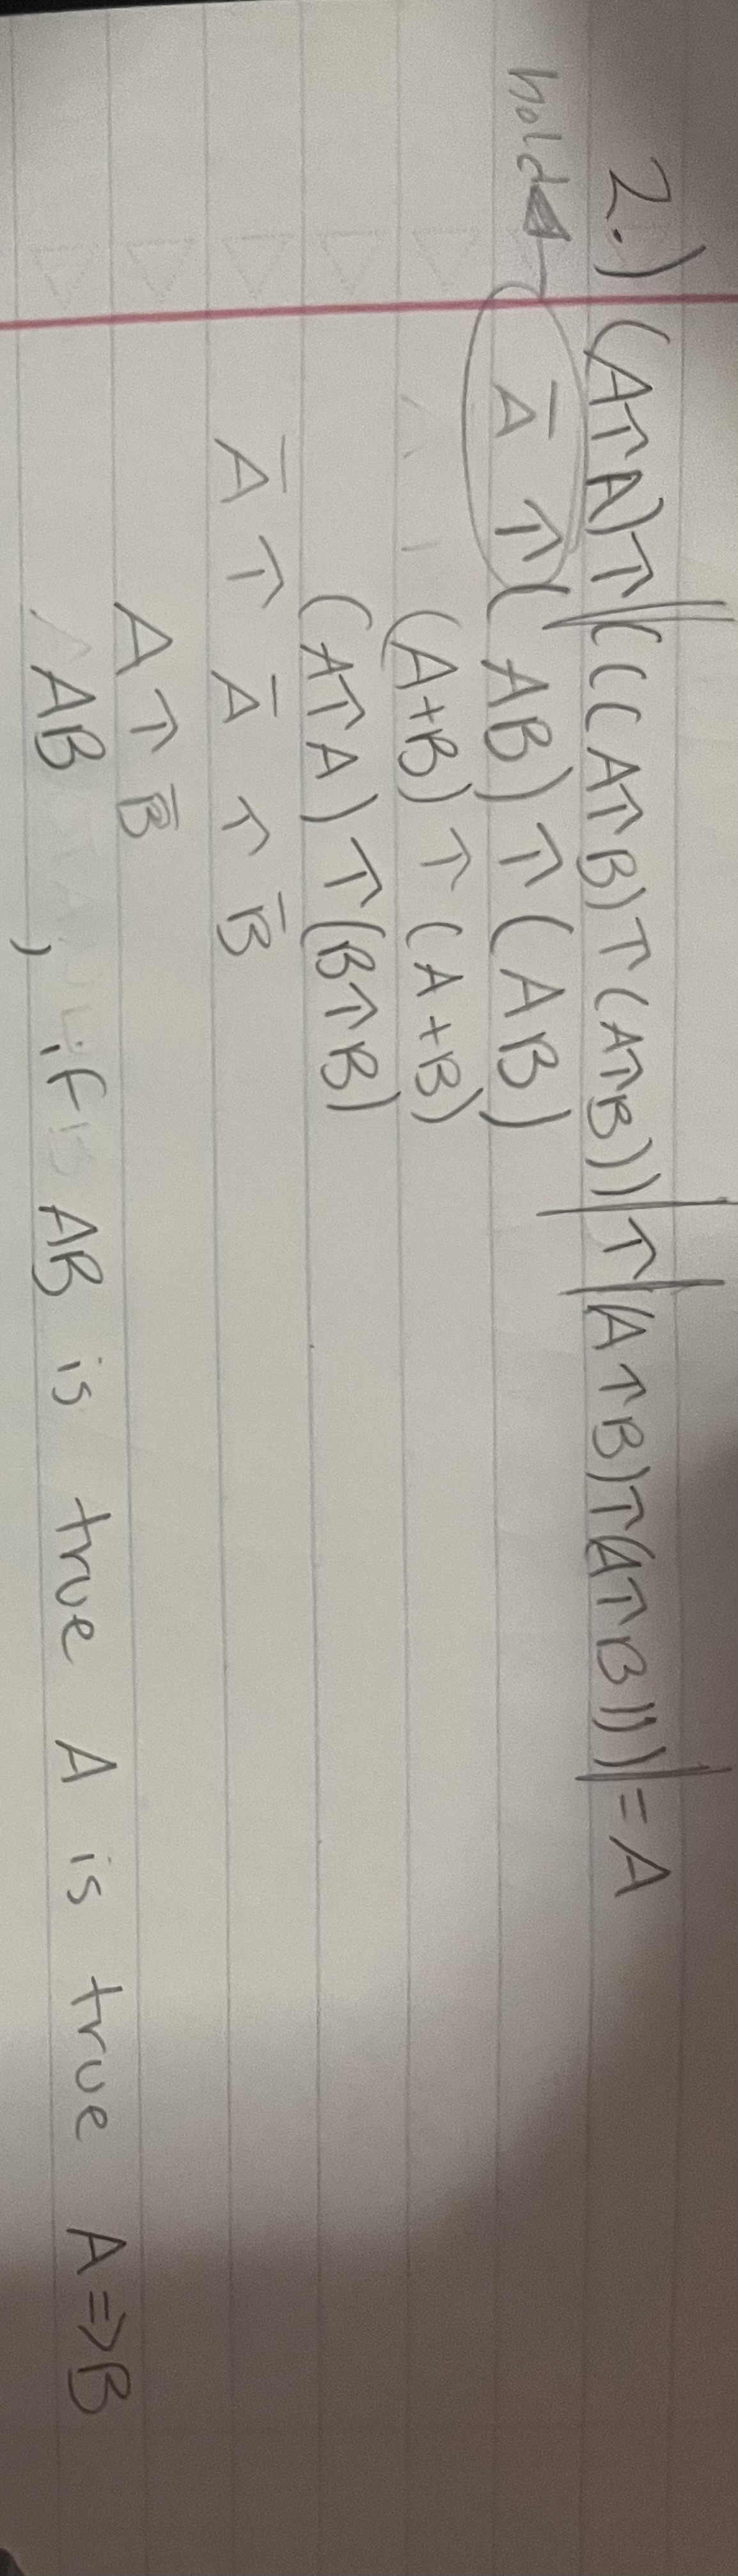 2.) (A↑A)↑||(((A↑B)↑(A↑B))|↑|(A↑B)↑(A↑B)))|=A
hold A̅ ↑( AB) ↑ (AB)
(A+B) ↑ (A+B)
(A↑A) ↑ (B↑B)
A̅ ↑ A̅ ↑ B̅
A ↑ B̅
AB , if AB is true A is true A=>B